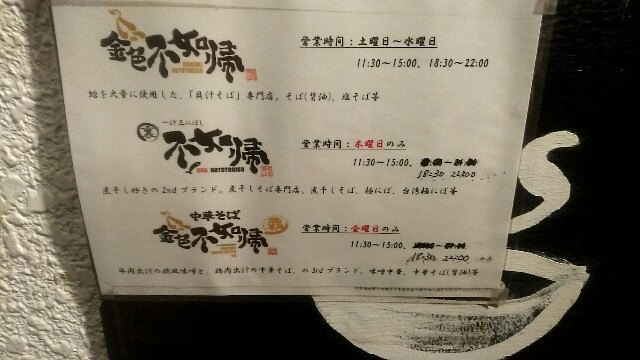 金色不如帰
営業時間：土曜日～水曜日
11:30～15:00、18:30～22:00
蛤を大量に使用した、「貝汁そば」専門店。そば(醤油)、塩そば等
裏
一汁三にぼし
不如帰
URA HOTOTOGISU
営業時間：木曜日のみ
11:30～15:00、
18:30 22:00
煮干し好きの2ndブランド。煮干しそば専門店。煮干しそば、極にぼ、台湾極にぼ等
中華そば
金色不如帰
営業時間：金曜日のみ
11:30～15:00、
18:30 22:00
牛肉出汁の欧風味噌と、鶏肉出汁の中華そば、の3rdブランド。味噌中華、中華そば(醤油)等